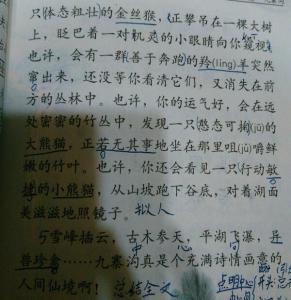 只体态粗壮的金丝猴，正攀吊在一棵大树
上，眨巴着一对机灵的小眼睛向你窥视。
也许，会有一群善于奔跑的羚(líng)羊突然
窜出来，还没等你看清它们，又消失在前
方的丛林中。也许，你的运气好，会在远
处密密的竹丛中，发现一只憨态可掬(jū)的
大熊猫，正若无其事地坐在那里咀(jǔ)嚼鲜
嫩的竹叶。也许，你还会看见一只行动敏
捷的小熊猫，从山坡跑下谷底，对着湖面
美滋滋地照镜子。拟人
5 雪峰插云，古木参天，平湖飞瀑，异
兽珍禽……九寨沟真是个充满诗情画意的
点明中心
人间仙境啊！总结全文